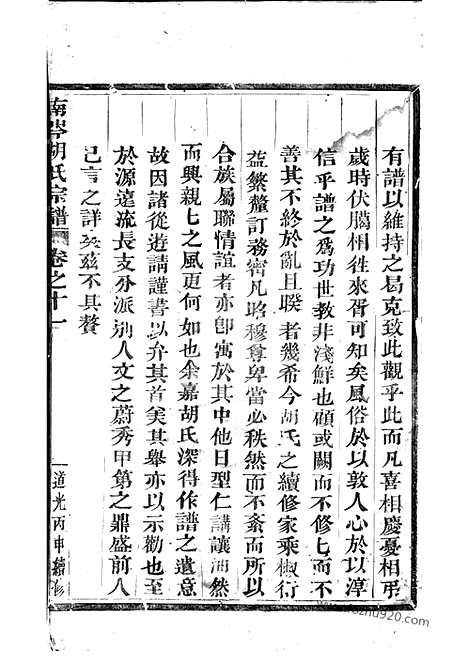 有譜以維持之曷克致此觀乎此而凡喜相慶憂相弔
歲時伏臈相徃來胥可知矣風俗於以敦人心於以淳
信乎譜之爲功世教非淺鮮也顧或闕而不修七而不
善其不終於亂且暌者幾希今胡氏之續修家乘椒衍
益繁釐訂務宻凡昭穆尊卑當必秩然而不紊而所以
合族屬聯情誼者亦卽寓於其中他日型仁講讓油然
而興親七之風更何如也余嘉胡氏深得作譜之遺意
故因諸從遊請謹書以弁其首美其舉亦以示勸也至
於源遠流長支分派别人文之蔚秀甲第之鼎盛前人
已言之詳矣茲不具贅
南岑胡氏宗譜 卷之十一
道光丙申續修
zhou920.com